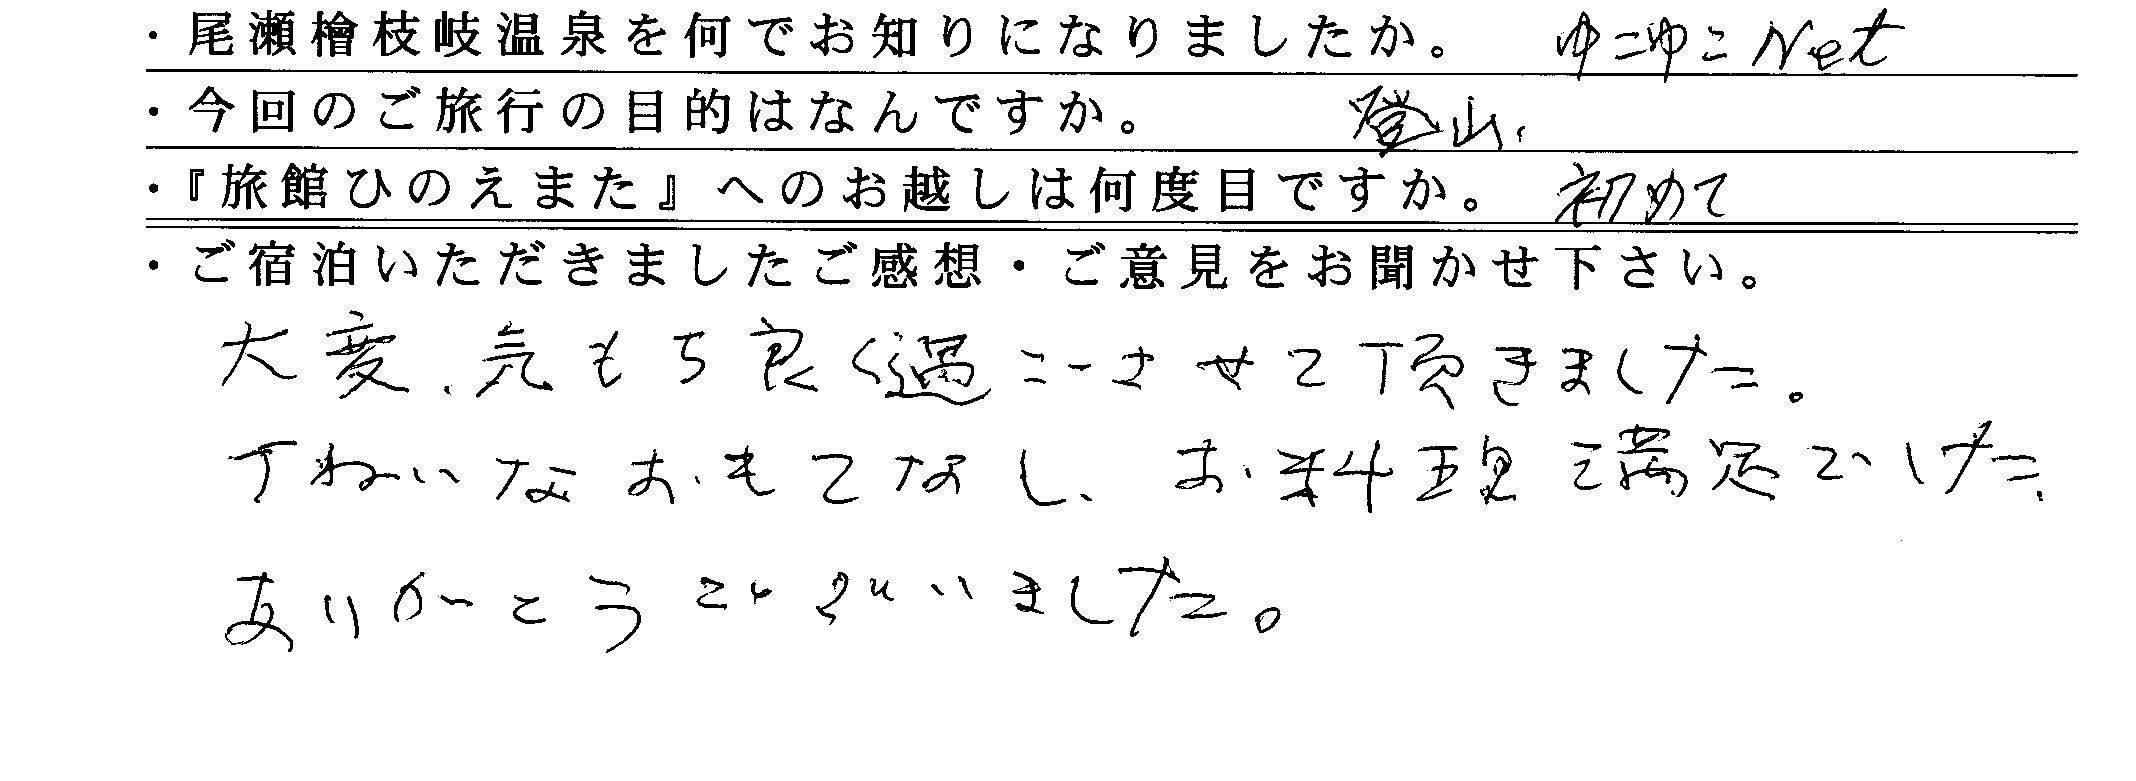 ・尾瀬檜枝岐温泉を何でお知りになりましたか。 ゆこゆこNet
・今回のご旅行の目的はなんですか。 登山、
・『旅館ひのえまた』へのお越しは何度目ですか。 初めて
・ご宿泊いただきましたご感想・ご意見をお聞かせ下さい。
大変、気もち良く過ごさせて頂きました。
丁ねいなおもてなし、お料理に満足でした、
ありがとうございました。